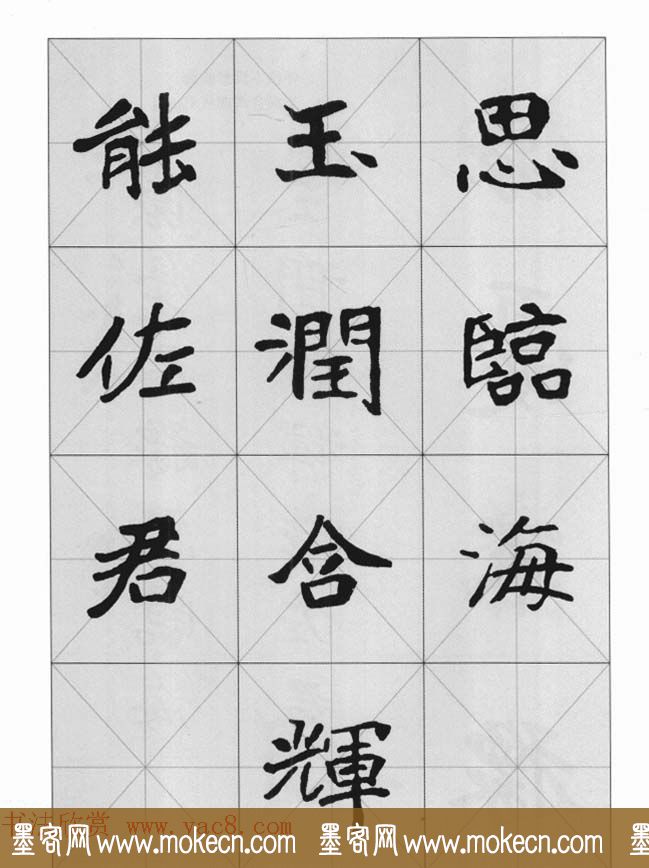 思臨海
玉潤含輝
能佐君
书法欣赏 www.yac8.com
墨客网 www.mokecn.com 墨客网 www.mokecn.com